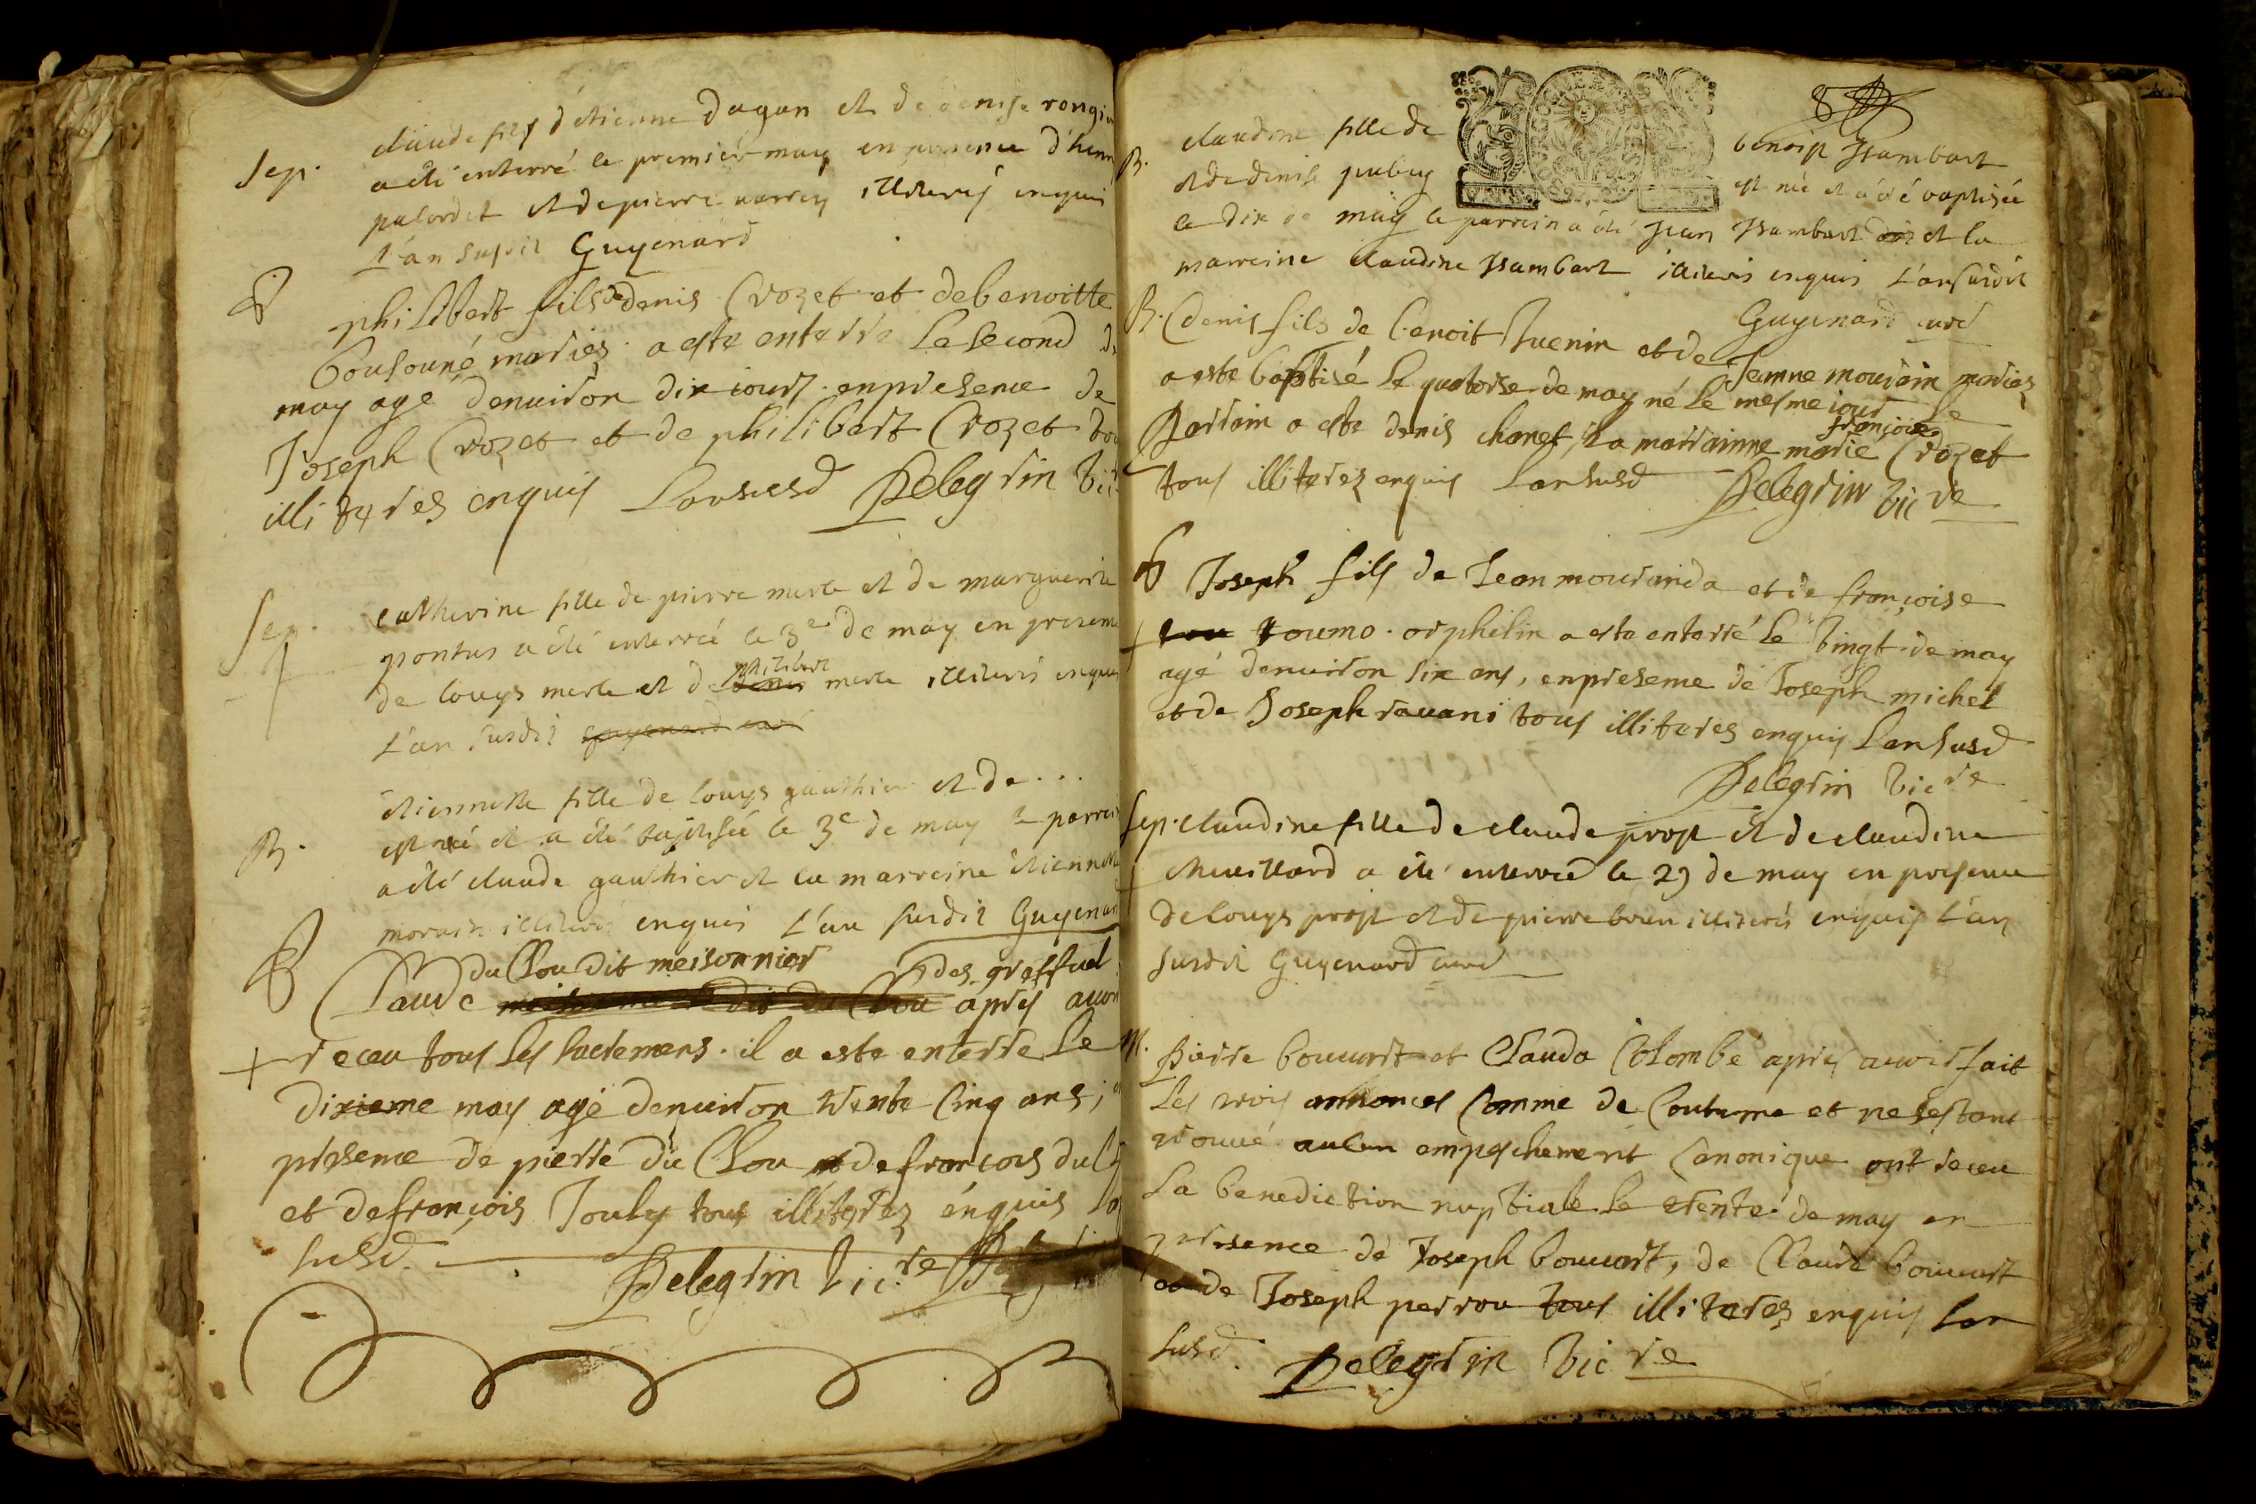 Sep.
claude fils d'étienne dagan et de denise
a été enterré le premier may en presence d'
et de pierre illiterés enquis
L'an susdit Guyenard
philibert fils de denis Crozet et de benoitte
mariés a este enterré Le second
may agé denuiron dix iours enpresence de
Joseph Crozet et de philibert Crozet
illiteres enquis Lansusd Pelegrin vic
Sep.
catherine fille de pierre merle et de marguerite
pontus a été enterrée le 3e de may en
de louys merle et de denis philibert merle illiterés
L'an susdit guyenard curé
B.
étiennette fille de louys gauthier et de . . .
est né et a été baptisée le 3e de may le
a été claude gauthier et la marreine
illiterés enquis L'an susdit
du Clou dit meisonnier des greffud
Claude dit du Clou apres
receu tous les sacremens. il a este enterré Le
dixieme may agé denuiron trente Cinq ans,
presence de pierre du Clou et de francois du
et de françois Jouly tous illiterez énquis
susd. Pelegrin vic.re
8
B.
claudine fille de benoist Isambart
et de denise est née et a été baptisée
le dix de may le parrein a été Jean Isambart et la
marreine claudine Isambart illiterés enquis L'an susdit
Guyenard curé
B. denis fils de benoit Iuenin et de Jeanne mariés
a este baptisé Le quatorse de may né Le mesme iour Le
Parrain a este denis chanet, La marrainne marie françoise Crozet
tous illiterez enquis Lansusd Pelegrin vic re
Joseph fils de Jean et de françoise
toumo. orphelin a este enterré Le vingt de may
agé denuiron six ans, enpresence de Joseph michel
et de Joseph rauani tous illiteres enquis Lansusd
Pelegrin vic re
Sep. claudine fille de claude prost et de claudine
a été enterrée le 29 de may en presence
de louys prost et de pierre illiterés enquis L'an
susdit Guyenard curé
M.
Pierre bouuart et Clauda Colombé apres auoir fait
Les trois annonces Comme de Coutume et ne sestant
trouué aucun empeschement Canonique ont receu
La benediction nuptiale Le trente de may en
presence de Joseph bouuart, de Claude bouuart
et de Joseph perrou tous illiterez enquis Lan
susd. Pelegrin vic re